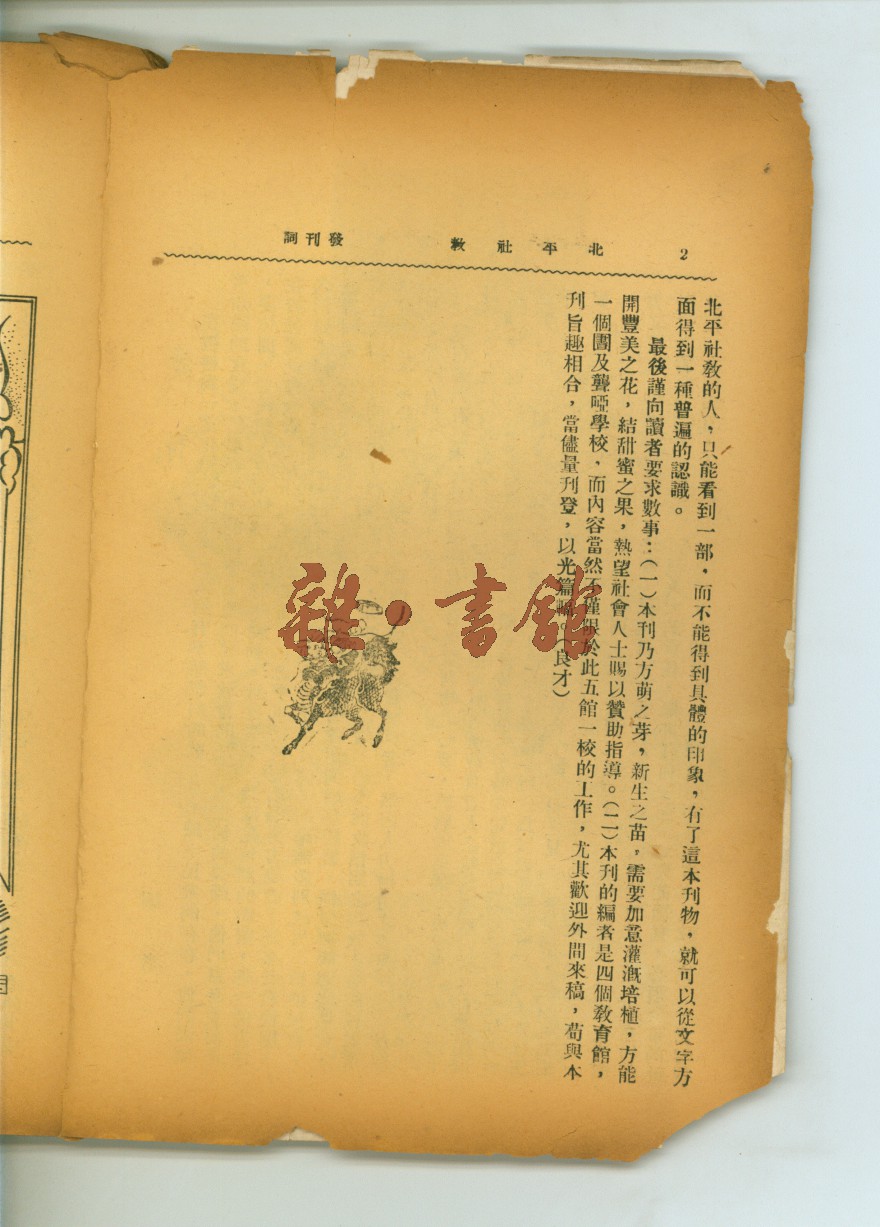 2　北平社教　發刊詞
北平社教的人，只能看到一部，而不能得到具體的印象，有了這本刊物，就可以從文字方
面得到一種普遍的認識。
最後謹向讀者要求數事：（一）本刊乃方萌之芽，新生之苗，需要加意灌漑培植，方能
開豐美之花，結甜蜜之果，熱望社會人士賜以贊助指導。（二）本刊的編者是四個教育館，
一個圕及聾啞學校，而內容當然不僅限於此五館一校的工作，尤其歡迎外間來稿，茍與本
刊旨趣相合，當儘量刊登，以光篇幅。（良才）
雜·書館